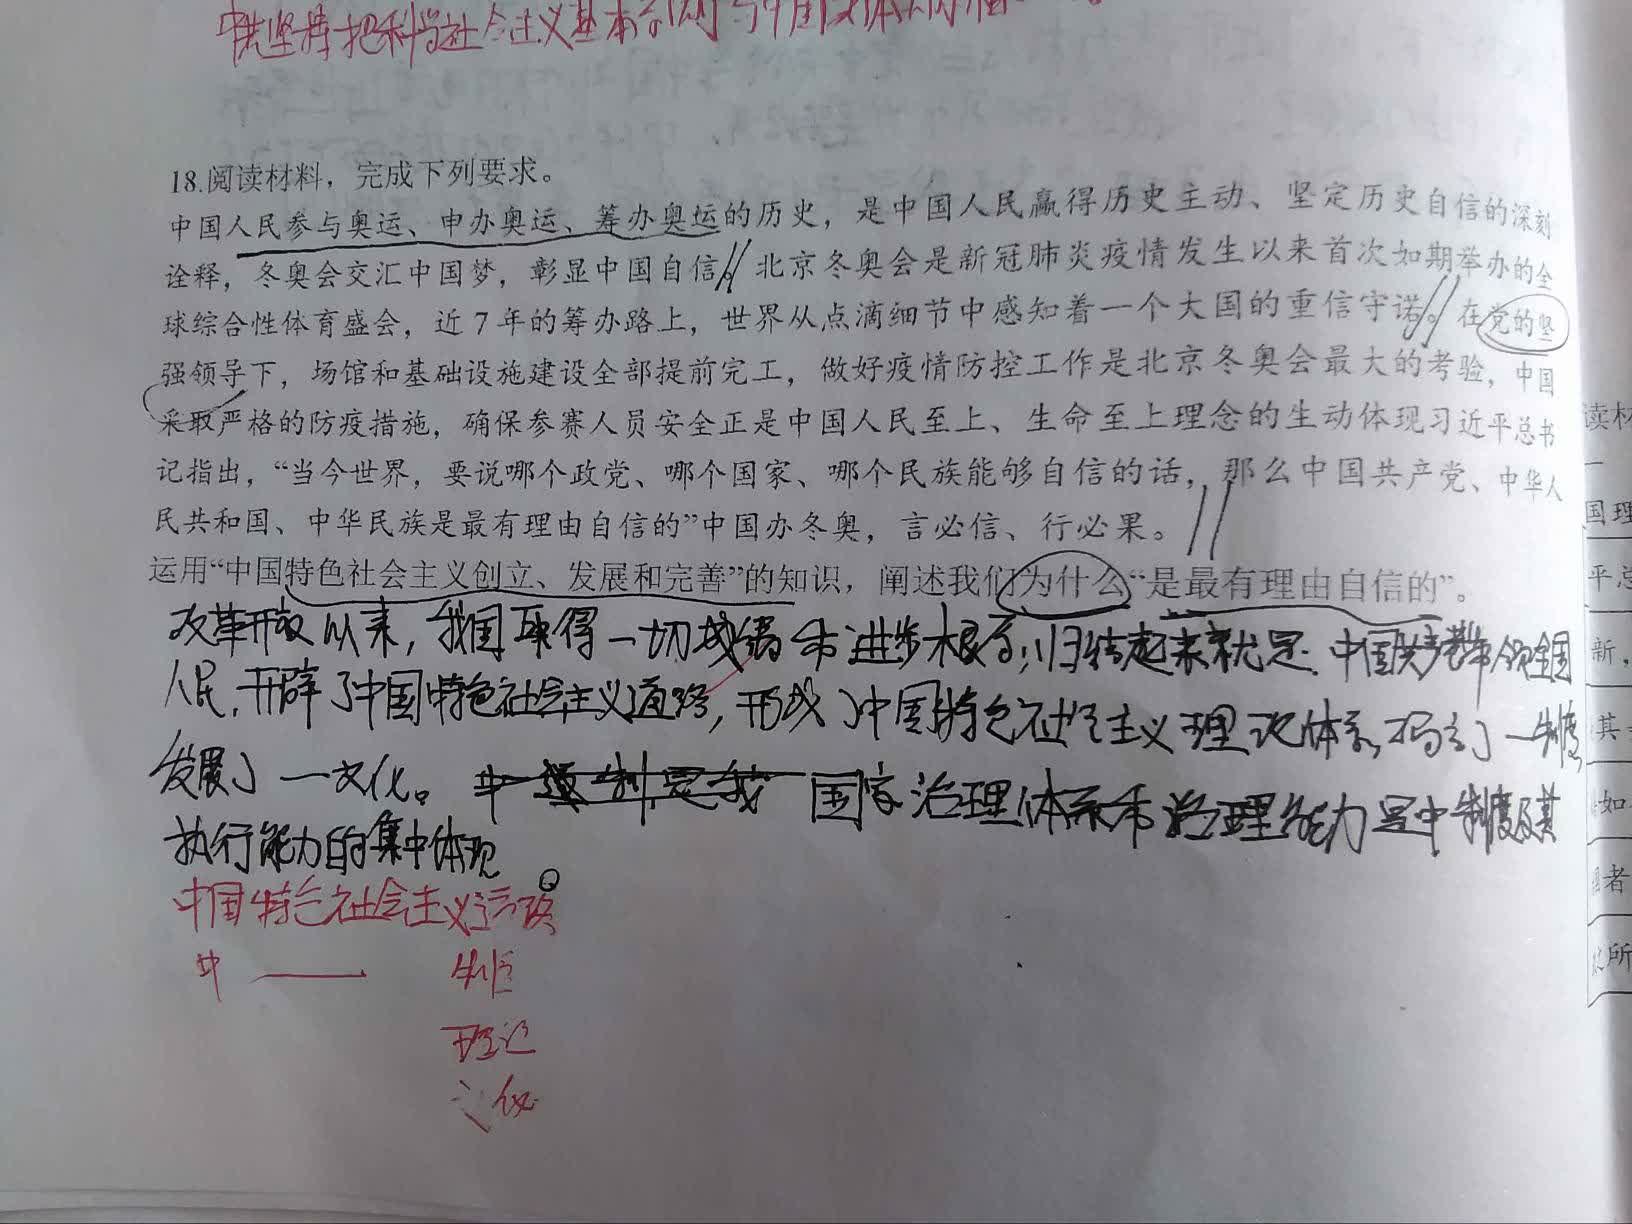 中共坚持把科学社会主义基本原则与中国具体
18.阅读材料，完成下列要求。
中国人民参与奥运、申办奥运、筹办奥运的历史，是中国人民赢得历史主动、坚定历史自信的深刻
诠释，冬奥会交汇中国梦，彰显中国自信。北京冬奥会是新冠肺炎疫情发生以来首次如期举办的全
球综合性体育盛会，近7年的筹办路上，世界从点滴细节中感知着一个大国的重信守诺。在党的坚
强领导下，场馆和基础设施建设全部提前完工，做好疫情防控工作是北京冬奥会最大的考验，中国
采取严格的防疫措施，确保参赛人员安全正是中国人民至上、生命至上理念的生动体现习近平总书
记指出，“当今世界，要说哪个政党、哪个国家、哪个民族能够自信的话，那么中国共产党、中华人
民共和国、中华民族是最有理由自信的”中国办冬奥，言必信、行必果。
运用“中国特色社会主义创立、发展和完善”的知识，阐述我们为什么“是最有理由自信的”。
改革开放以来，我国取得一切成绩和进步根本，归结起来就是：中国共产党带领全国
人民，开辟了中国特色社会主义道路，形成了中国特色社会主义理论体系，确立了一制度，
发展了一文化。国家治理体系和治理能力是中制度及其
执行能力的集中体现。
中国特色社会主义道路
中 —— 制度
理论
文化
读材
国理
平总
新，
其
如
者
所